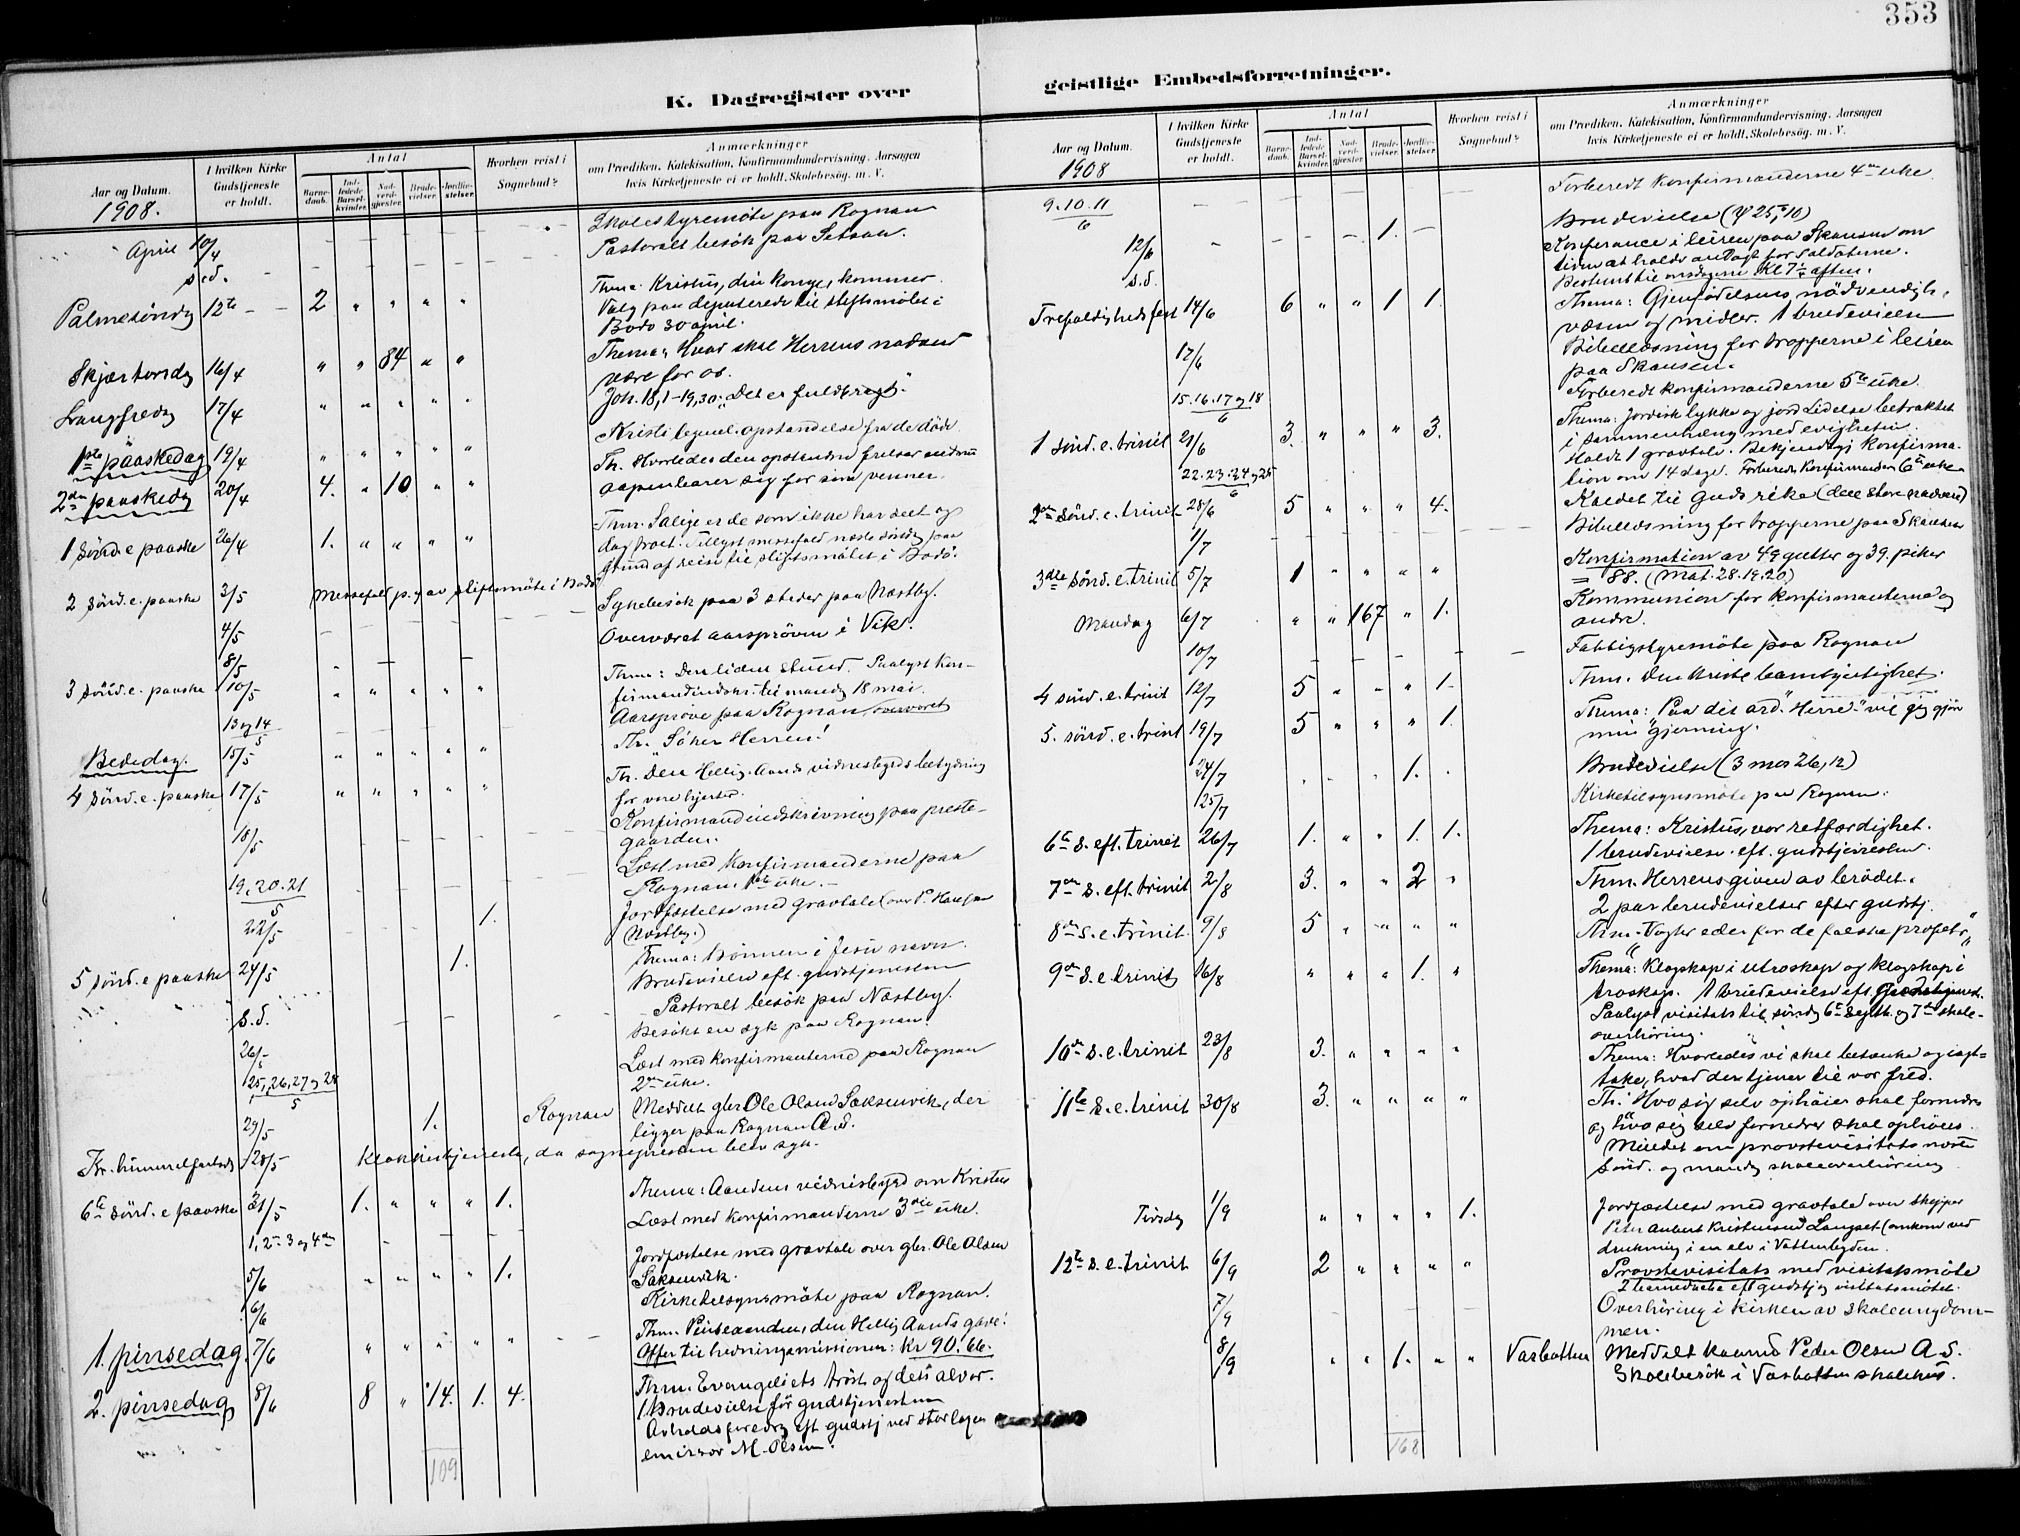 353
K. Dagregister over
geistlige Embedsforretninger.
Aar og Datum.
1908.
I hvilken Kirke Gudstjeneste er holdt.
Antal
Barnedaab.
Indledede Barselkvinder.
Nadverdgjester.
Brudevielser.
Jordfæstelser.
Hvorhen reist i Sognebud?
Anmærkninger
om Prædiken, Katekisation, Konfirmandundervisning, Aarsagen
hvis Kirketjeneste ei er holdt, Skolebesøg. m. V.
April 10/4 Skolestyremöte paa Rognan
s.d. Pastoralt besök paa Setsaa.
Palmesöndag 12te 2 " " " " Thma: Kristus, din konge, kommer.
Valg paa deputerede til stiftsmötet i
Bodö 30 april.
Skjærtorsdag 16/4 " " 84 " " Thema: Hvad skal Herrens nadverd
være for os.
Langfredag 17/4 " " " " " Joh. 18,1-19,30: "Det er fuldbragt".
1ste paaskedag 19/4 " " " " " Kristi legeml. opstandelse fra de döde
2den paaskedag 20/4 4. " 10 " " Th. Hvorledes den opstandne frelser endnu
aapenbarer sig for sine venner.
1 Sönd. e paaske 26/4 1. " " " " Thm. Salige er de som ikke har seet og
dog troet. Tillyst messefald næste söndag paa
grund af reise til stiftsmötet i Bodö.
2 sönd. e. paaske 3/5 Messefald p. g av stiftsmöte i Bodö
4/5 Sykebesök paa 3 steder paa Næstby.
8/5 Overværet aarspröven i Vik.
3 sönd. e. paaske 10/5 " " " " " Thm: Den liden stund. Paalyst konfirmandindskr. til mandag 18 mai.
13 og 14/5 Aarspröve paa Rognan overværet
Bededag. 15/5 " " " " " Th. "Söker Herren!
4 Sönd. e. paaske 17/5 " " " " " Th. Den Hellig-Aands vidnesbyrds betydning
for vore hjerter.
18/5 Konfirmandindskrivning paa prestegaarden.
19. 20. 21/5 Læst med konfirmanderne paa
Rognan. 1ste uke.
22/5 1. Jordfæstelse med gravtale (over P. Hansen
Næstby.)
5 sönd. e paaske 24/5 1. Thema: Bönnen i Jesu navn.
Brudevielse eft. gudstjenesten
s.d. Pastoralt besök paa Næstby.
26/5 Besökt en syk paa Rognan.
25, 26, 27 og 28/5 Læst med konfirmanterne paa Rognan
2den uke.
29/5 1. Rognan Meddelt gbr. Ole Olsen Saksenvik, der
ligger paa Rognan A.S.
Kr. himmelfartsdag 28/5 Klokkertjeneste, da sognepresten blev syk.
6te Sönd. e paaske 31/5 1. " " " 1. Thema: Aandens vidnesbyrd om Kristus
1, 2 3 og 4de Læst med konfirmanderne 3die uke.
5/6 " " " " 1. Jordfæstelse med gravtale over gbr. Ole Olsen
Saksenvik.
6/6 Kirketilsynsmöte paa Rognan.
1. pinsedag. 7/6 " " " " " Thm. Pinseaanden, den Hellig Aands gave!
Offer til hedningemissionen: Kr 90.66.
2. pinsedag 8/6 8 " 14. 1. 4. Thm. Evangeliets tröst og dets alvor.
1 Brudevielse för gudstjenesten
Avholdsforedrag eft gudstj ved storlogen
emissær M. Olsen.
109
Aar og Datum.
1908
I hvilken Kirke Gudstjeneste er holdt.
Antal
Barnedaab.
Indledede Barselkvinder.
Nadverdgjester.
Brudevielser.
Jordfæstelser.
Hvorhen reist i Sognebud?
Anmærkninger
om Prædiken, Katekisation, Konfirmandundervisning, Aarsagen
hvis Kirketjeneste ei er holdt, Skolebesög. m. V.
9. 10. 11/6 Forberedt konfirmanderne 4de uke.
12/6 1. Brudevielse (ψ 25, 10)
s.d. Konferance i leiren paa Skansen om
tiden at holde andagt for soldaterne.
Bestemt til onsdagene Kl 7 1/2 aften.
Trefoldighedsfest 14/6 6 " " 1 1. Thema: Gjenfödelsens nödvendigh.
væsen og midler. 1 brudevielse
17/6 Bibellæsning for tropperne i leiren
paa Skansen.
15. 16. 17 og 18/6 Forberedt konfirmanderne 5te uke.
1 sönd. e. trinit 21/6 3. " " " 3. Thema: Jordisk lykke og jord. lidelse betraktet
i sammenhæng med evigheten.
Holdt 1 gravtale. Bekjendtgj. konfirmation om 14 dage.
22. 23. 24 og 25/6 Forberedt konfirmanderne 6te uke
2den Sönd. e. trinit. 28/6 5 " " " 4. Kaldet til Guds rike (den store nadver)
1/7 Bibellæsning for tropperne paa Skansen
3die Sönd. e. trinit 5/7 1 " " " " Konfirmation av 49 gutter og 39. piker
= 88. (Mat. 28. 19. 20)
Mandag 6/7 " " 167 " 1. Kommunion for konfirmanterne og
andre.
10/7 Fattigstyremöte paa Rognan
4 sönd. e. trinit 12/7 5 " " " 1. Thm. Den kristl. barmhjertighet.
5. sönd. e. trinit 19/7 5 " " " 1. Thema: "Paa dit ord, Herre" vil jeg gjöre
min gjerning.
24/7 1. Brudevielse (3 mos 26, 12)
25/7 Kirketilsynsmöte paa Rognan.
6te s. eft. trinit 26/7 1. " " 1. 1. Thema: Kristus, vor retfærdighet.
1 brudevielse eft. gudstjenesten.
7de s. eft. trinit 2/8 3. " " 2 " Thm. Herrens given av brödet.
2 par brudevielser efter gudstj.
8de s. e. trinit. 9/8 5 " " " " Thm. "Vogter eder for de falske profeter"
9de s. e. trinit 16/8 " " " 1. " Thema: Klogskap i utroskap og klogskap i
troskap. 1 brudevielse eft. Gudstjenest.
Paalyst visitats til söndag 6te Septb. og 7de skoleoverhöring.
10de s. e. trinit 23/8 3. " " " " Thema: Hvorledes vi skal betænke og iagttake, hvad der tjener til vor fred.
11te s. e. trinit 30/8 3. " " " " Th. Hvo sig selv ophöier skal fornedres
og hvo sig selv fornedrer skal ophöies.
Mindet om provstevisitats næste
sönd. og mandag skoleoverhöring.
Tirsdag 1/9 " " " " 1. Jordfæstelse med gravtale over skipper
Peter Aubert Kristensen Langset (omkom ved
drukning i en elv i Vatten bygden.
12te s. e. trinit. 6/9 2 " " " " Provstevisitats med visitatsmöte
eft gudstj visitatsmötet
7/9 Overhöring i kirken av skoleungdommen.
8/9 " " 1. " " Vasbotten Meddelt Peder Olsen A.S.
Skolebesök i Vasbotten skolehus.
168